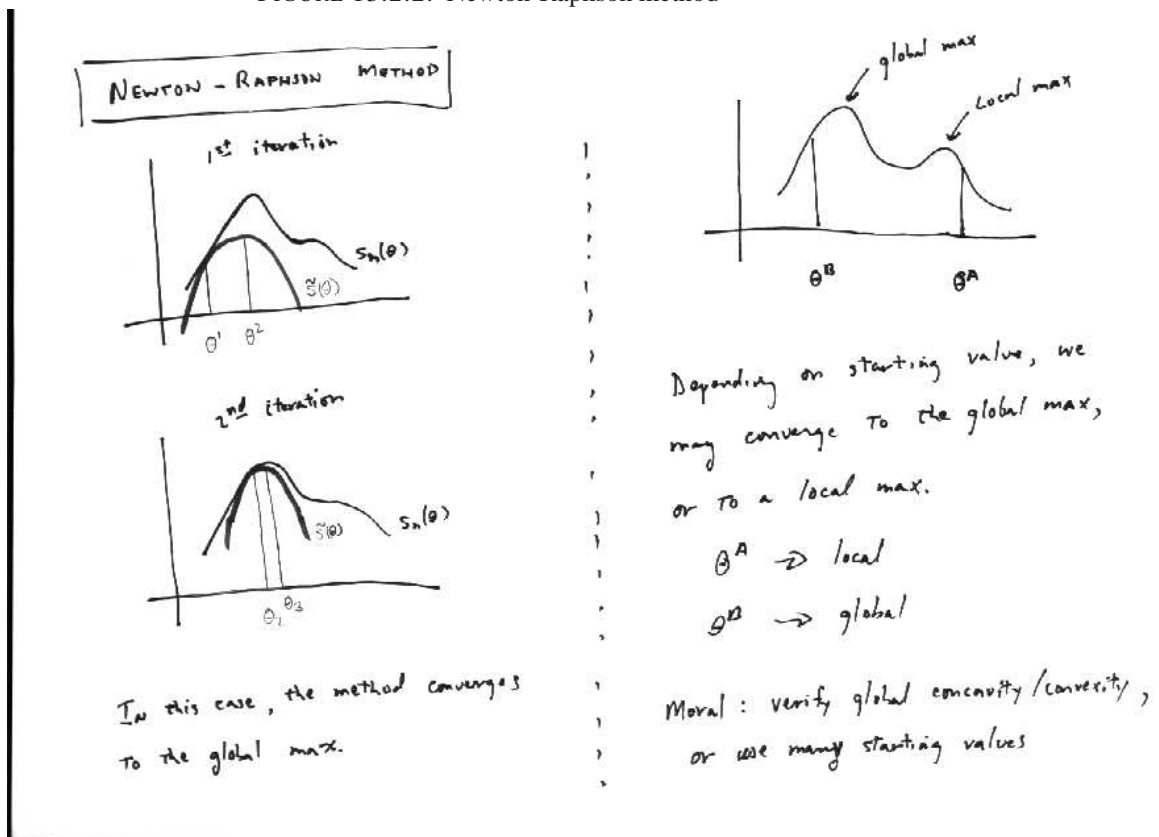 FIGURE 13.2.2. Newton-Raphson method
NEWTON - RAPHSON METHOD
1st iteration
Sₙ(θ)
s̃(θ)
θ¹ θ²
2nd iteration
Sₙ(θ)
s̃(θ)
θ₂ θ₃
In this case, the method converges
to the global max.
global max
Local max
θᴮ θᴬ
Depending on starting value, we
may converge to the global max,
or to a local max.
θᴬ → local
θᴮ → global
Moral: verify global concavity/convexity,
or use many starting values